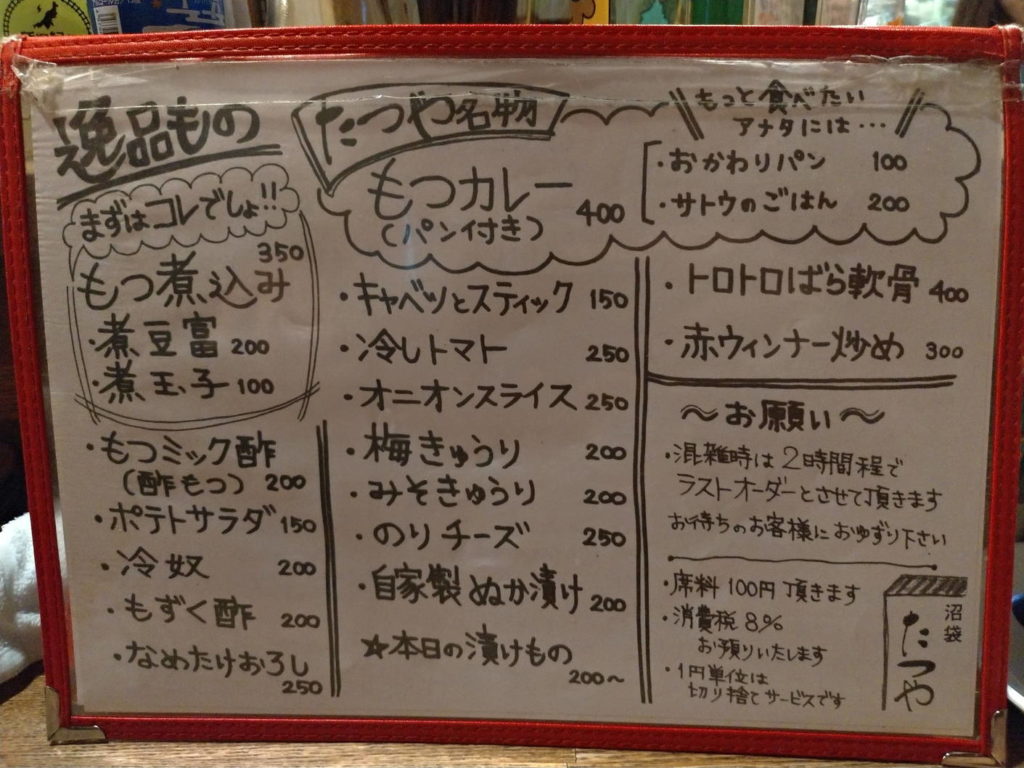 逸品もの
まずはコレでしょ!!
350
もつ煮込み
・煮豆富 200
・煮玉子 100
・もつミック酢
(酢もつ) 200
・ポテトサラダ 150
・冷奴 200
・もずく酢 200
・なめたけおろし
250
たつや名物
もつカレー
(パン付き) 400
もっと食べたい
アナタには…
・おかわりパン 100
・サトウのごはん 200
・キャベツとスティック 150
・冷しトマト 250
・オニオンスライス 250
・梅きゅうり 200
・みそきゅうり 200
・のりチーズ 250
・自家製ぬか漬け 200
☆本日の漬けもの
200〜
・トロトロばら軟骨 400
・赤ウィンナー炒め 300
〜お願い〜
・混雑時は2時間程で
ラストオーダーとさせて頂きます
お待ちのお客様におゆずり下さい
・席料100円頂きます
・消費税8%
お預りいたします
・1円単位は
切り捨てサービスです
沼袋
たつや